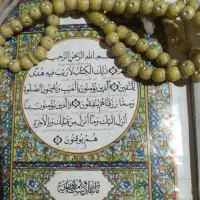 بسم الله الرحمن الرحيم
ذلك الكتاب لا ريب فيه هدى
للمتقين الذين يؤمنون بالغيب ويقيمون الصلوة
ومما رزقناهم ينفقون والذين يؤمنون بما
أنزل إليك وما أنزل من قبلك وبالآخرة
هم يوقنون